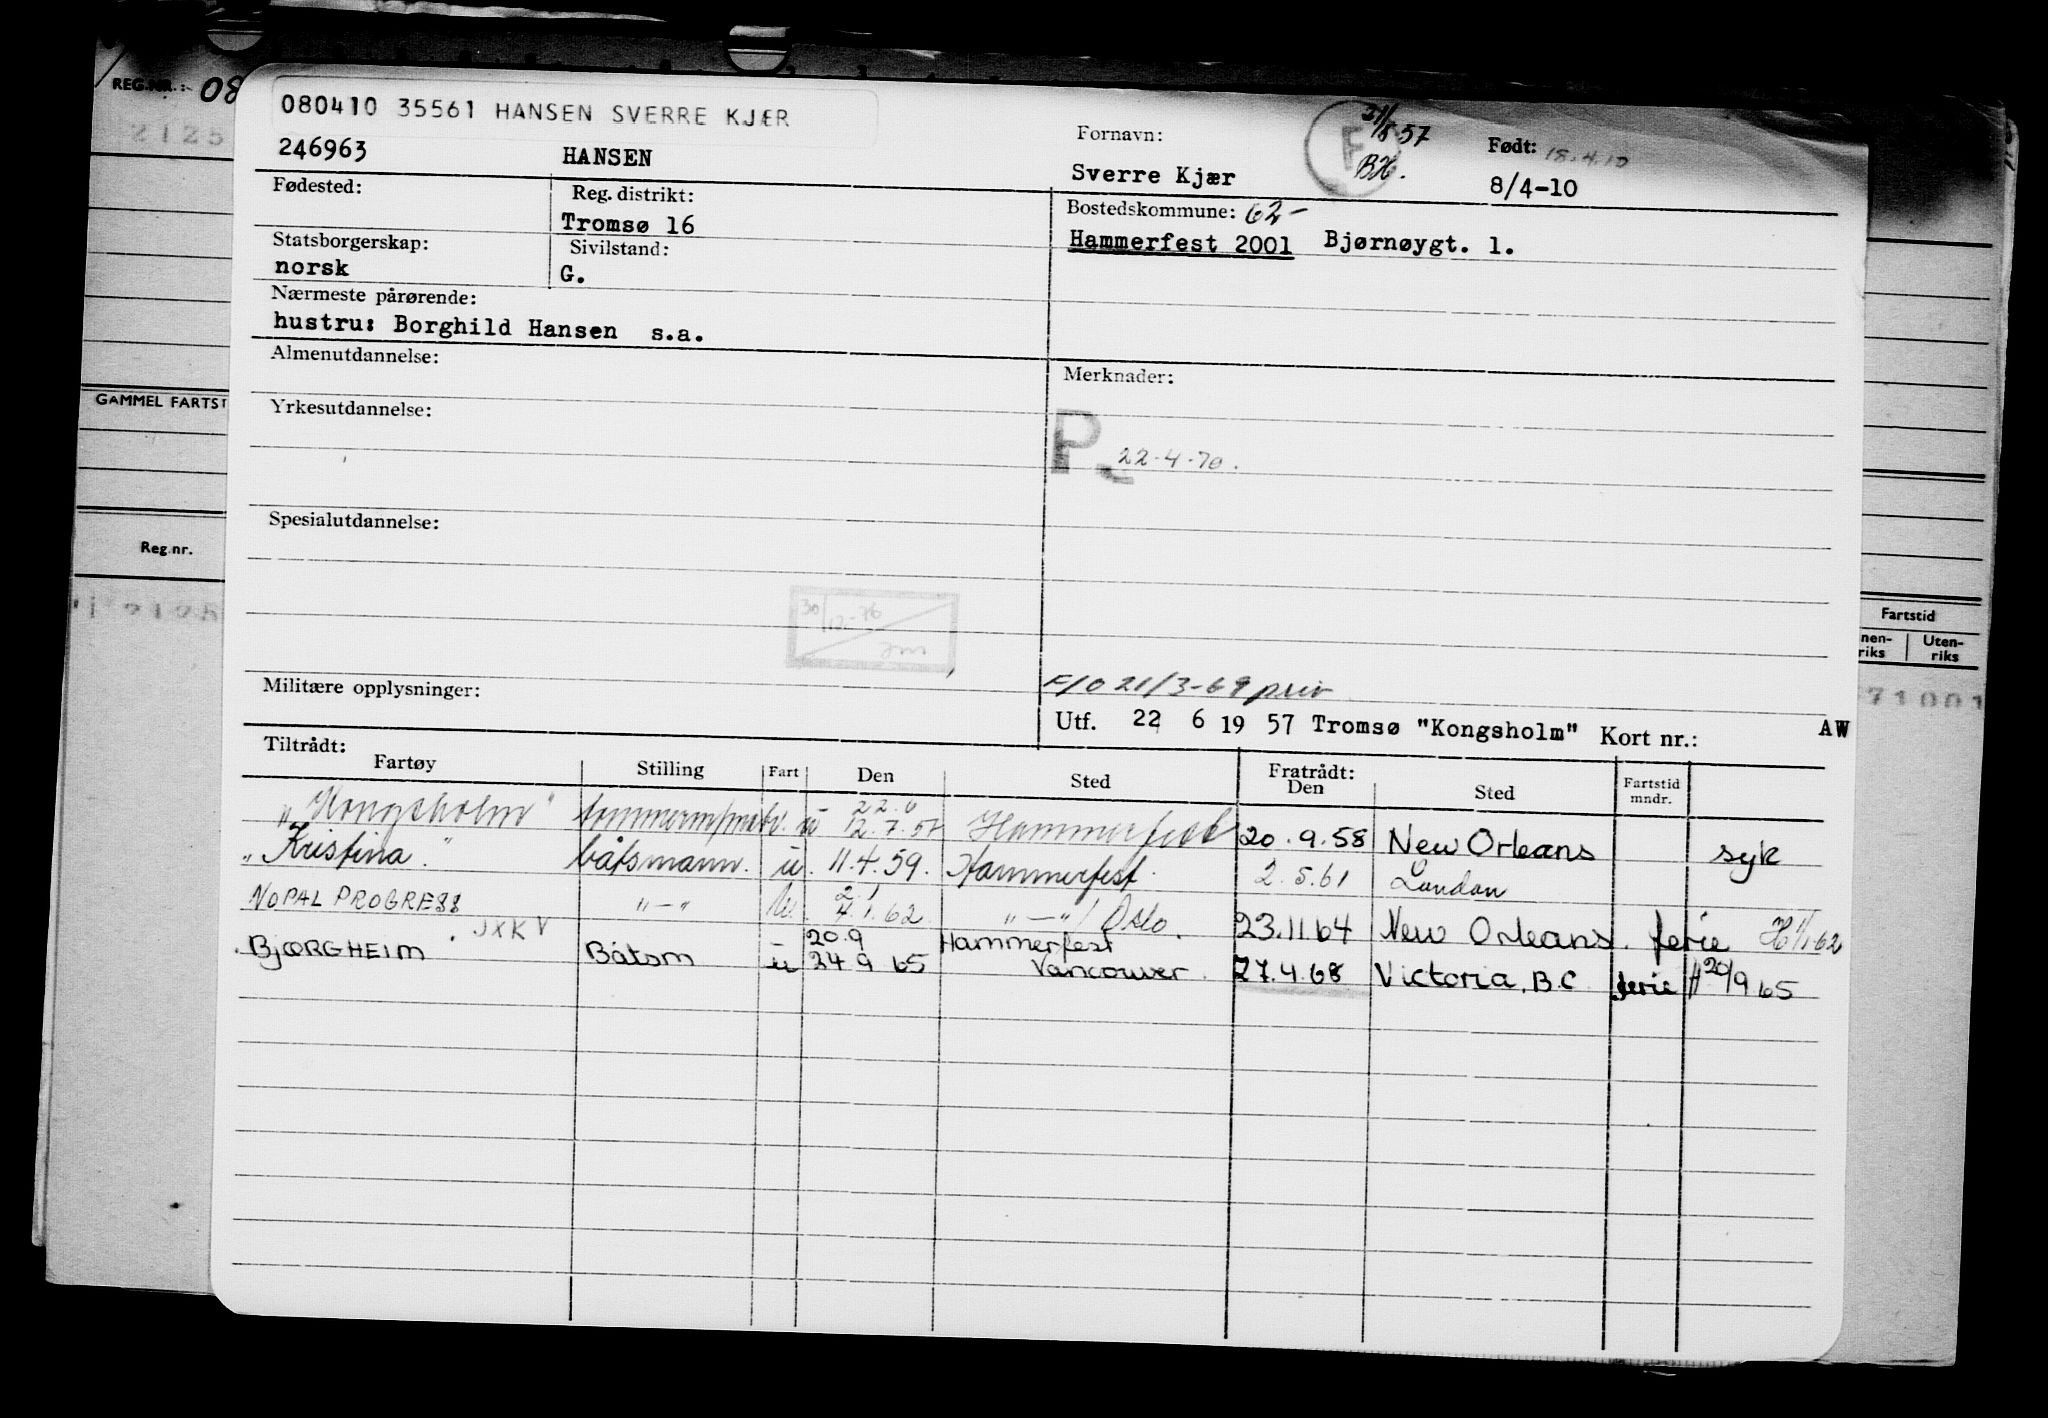 REG.NR.: 08
080410 35561 HANSEN SVERRE KJÆR
246963 HANSEN
Fornavn: Sverre Kjær
F
21/8 57
BH.
Født: 18.4.10
8/4-10
Fødested:
Reg. distrikt: Tromsø 16
Bostedskommune: 62-
Hammerfest 2001 Bjørnøygt. 1.
Statsborgerskap: norsk
Sivilstand: G.
Nærmeste pårørende:
hustru: Borghild Hansen s.a.
Almenutdannelse:
Merknader:
GAMMEL FARTST
Yrkesutdannelse:
P 22.4.70.
Spesialutdannelse:
Reg.nr.
30/12-76
Fartstid
nen-
riks
Uten-
riks
71001
Militære opplysninger:
F/O 21/3-69 priv
Utf. 22 6 19 57 Tromsø "Kongsholm" Kort nr.: AW
Tiltrådt:
Fartøy Stilling Fart Den Sted Fratrådt: Den Sted Fartstid mndr.
"Kongsholm" u 22.6 12.7.57 Hammerfest 20.9.58 New Orleans syk
"Kristina" båtsmann. u. 11.4.59. Hammerfest. 2.5.61 London
NOPAL PROGRESS "—" 2.1 4.1.62 "—"/Oslo. 23.11.64 New Orleans. ferie H 1/1.62
JXKV
BJØRGHEIM Båtsm u 20.9 24.9 65 Hammerfest Vancouver. 27.4.68 Victoria, B.C ferie H 20/9 65